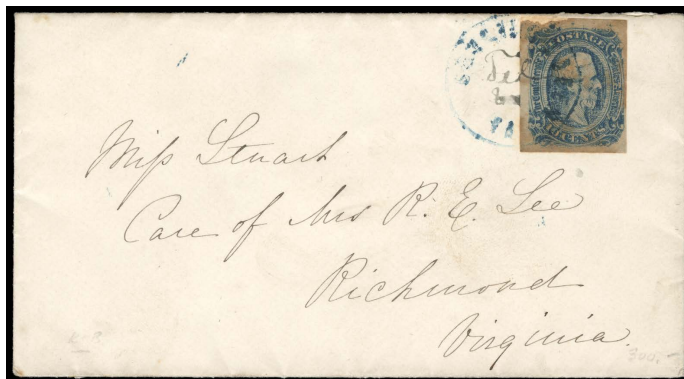 POSTAGE
Feb
Va
TEN CENTS
Miss Stuart
Care of Mrs R. E. Lee
Richmond
Virginia.
300.-